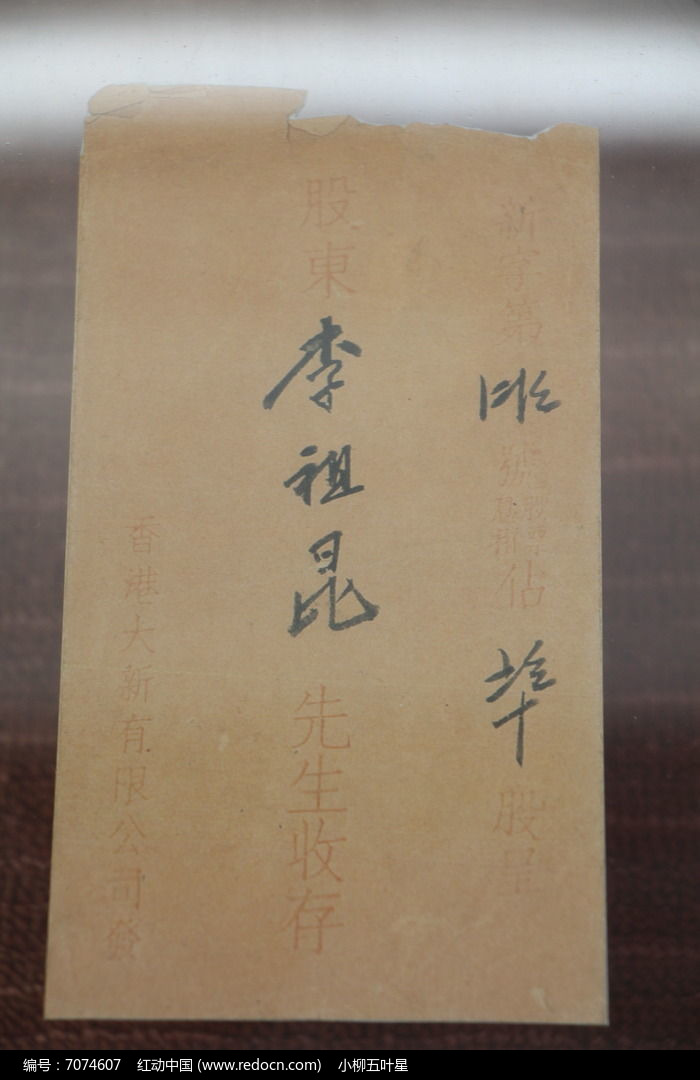 新字第 號 股票息摺 佔 股呈
股東 李祖昆 先生收存
香港大新有限公司發
编号：7074607 红动中国 (www.redocn.com) 小柳五叶星